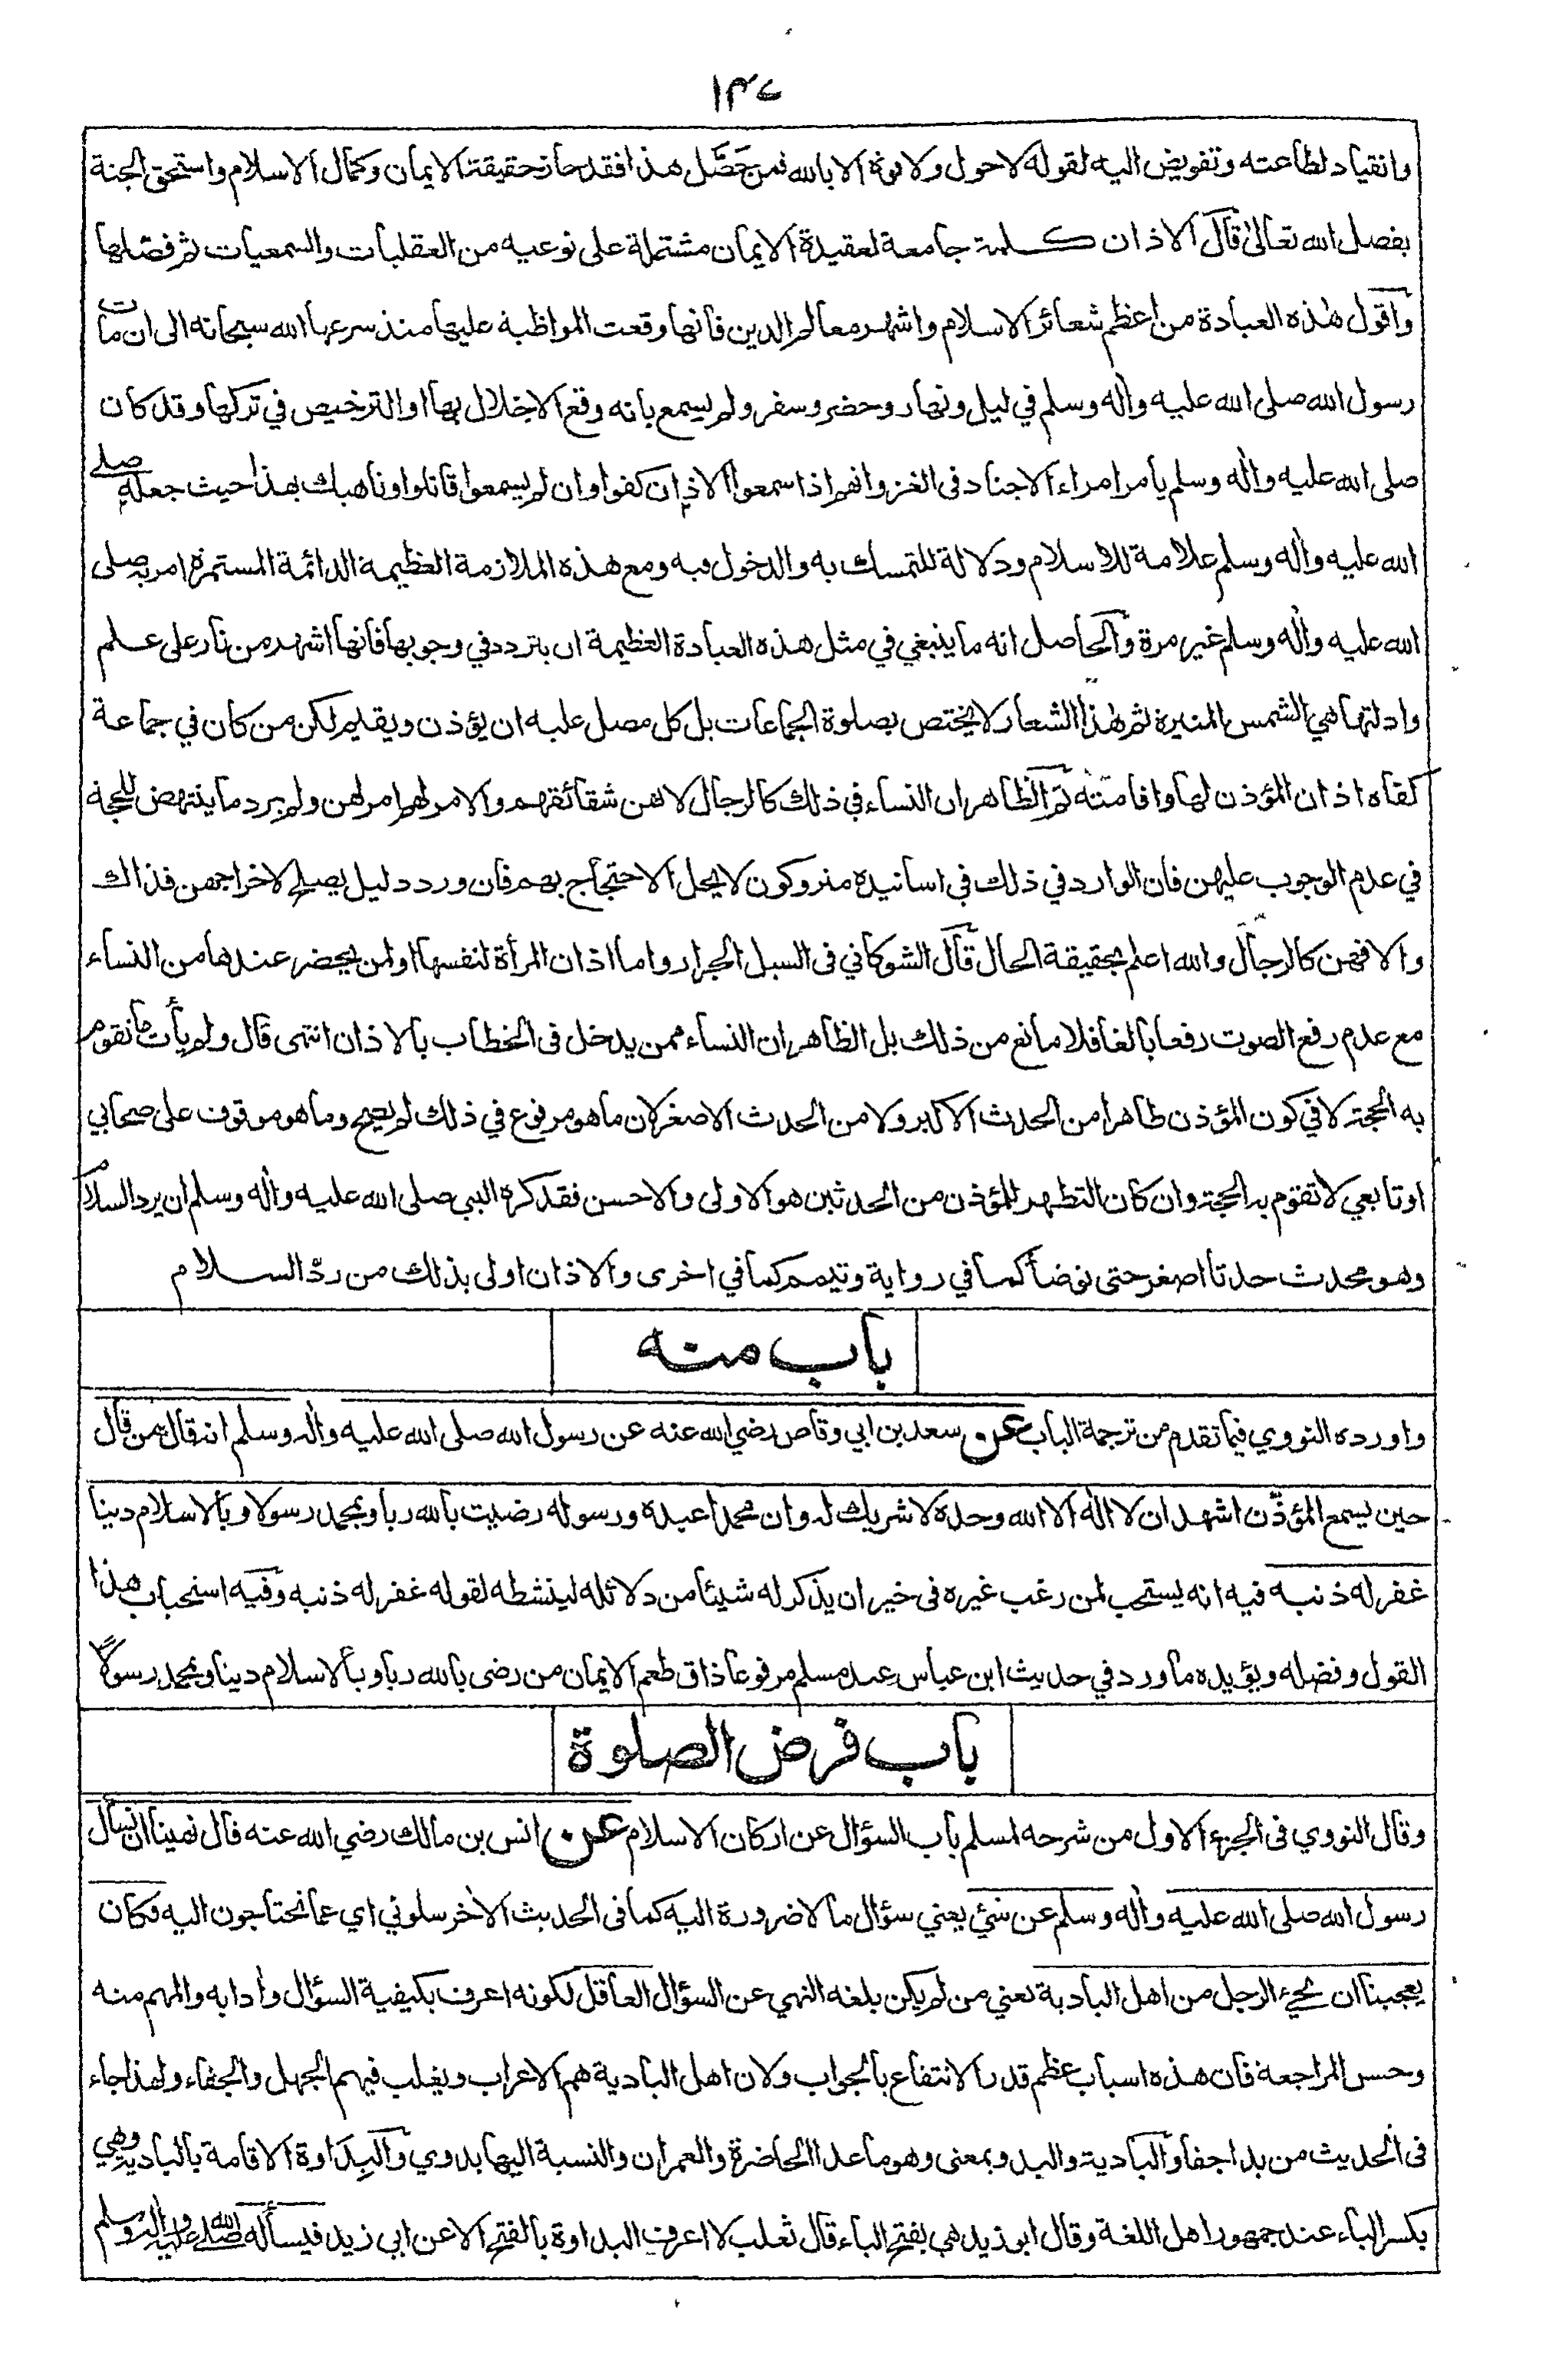 ١٣٤
وانقياد لطاعته وتفويض اليه لقوله لاحول ولا قوة الا بالله فمن حَصَّل هذا فقد حاز حقيقة الايمان وكمال الاسلام واستحق الجنة
بفضل الله تعالى قال الاذان كلمة جامعة لعقيدة الايمان مشتملة على نوعيه من العقليات والسمعيات ثم فصلها
واقول هذه العبادة من اعظم شعائر الاسلام واشهر معالم الدين فانها وقعت المواظبة عليها منذ شرعها الله سبحانه الى ان مات
رسول الله صلى الله عليه واله وسلم في ليل ونهار وحضر وسفر ولم يسمع بانه وقع الاخلال بها او الترخيص في تركها وقد كان
صلى الله عليه واله وسلم يأمر امراء الاجناد في الغزو انهم اذا سمعوا الاذان كفوا وان لم يسمعوا قاتلوا وناهيك بهذا حيث جعله صلى
الله عليه واله وسلم علامة للاسلام ودلالة للتمسك به والدخول فيه ومع هذه الملازمة العظيمة الدائمة المستمرة امر به صلى
الله عليه واله وسلم غير مرة والحاصل انه ما ينبغي في مثل هذه العبادة العظيمة ان يتردد في وجوبها فانها اشهر من نار على علم
وادلتها هي الشمس المنيرة ثم هذا الشعار لا يختص بصلوة الجماعات بل كل مصل عليه ان يؤذن ويقيم لكن من كان في جماعة
كفاه اذان المؤذن لها واقامته ثم الظاهر ان النساء في ذلك كالرجال لانهن شقائقهم والامر لهم امر لهن ولم يرد ما ينتهض للحجة
في عدم الوجوب عليهن فان الوارد في ذلك في اسانيده متروكون لا يحل الاحتجاج بهم فان ورد دليل يصلح لاخراجهن فذاك
والا فهن كالرجال والله اعلم بحقيقة الحال قال الشوكاني في السيل الجرار واما اذان المرأة لنفسها او لمن يحضر عندها من النساء
مع عدم رفع الصوت رفعا بالغا فلا مانع من ذلك بل الظاهر ان النساء ممن يدخل في الخطاب بالاذان انتهى قال ولم يأت ما تقوم
به الحجة لا في كون المؤذن طاهرا من الحدث الاكبر ولا من الحدث الاصغر لان ما هو مرفوع في ذلك لم يصح وما هو موقوف على صحابي
او تابعي لا تقوم به الحجة وان كان التطهر للمؤذن من الحدثين هو الاولى والاحسن فقد كره النبي صلى الله عليه واله وسلم ان يرد السلام
وهو محدث حدثا اصغر حتى توضأ كما في رواية وتيمم كما في اخرى والاذان اولى بذلك من ردّ السلام
باب منه
واورده النووي فيما تقدم من ترجمة الباب عن سعد بن ابي وقاص رضي الله عنه عن رسول الله صلى الله عليه واله وسلم انه قال من قال
حين يسمع المؤذن اشهد ان لا اله الا الله وحده لا شريك له وان محمدا عبده ورسوله رضيت بالله ربا وبمحمد رسولا وبالاسلام دينا
غفر له ذنبه فيه انه يستحب لمن رغب غيره في خير ان يذكر له شيئا من دلائله لينشطه لقوله غفر له ذنبه وفيه استحباب هذا
القول وفضله ويؤيده ما ورد في حديث ابن عباس عند مسلم مرفوعا ذاق طعم الايمان من رضى بالله ربا وبالاسلام دينا وبمحمد رسولا
باب فرض الصلوة
وقال النووي في الجزء الاول من شرحه لمسلم باب السؤال عن اركان الاسلام عن انس بن مالك رضي الله عنه قال نهينا ان نسأل
رسول الله صلى الله عليه واله وسلم عن شئ يعني سؤال ما لا ضرورة اليه كما في الحديث الاخر سلوني اي عما تحتاجون اليه فكان
يعجبنا ان يجيء الرجل من اهل البادية يعني من لم يكن بلغه النهي عن السؤال العاقل لكونه اعرف بكيفية السؤال وادابه والمهم منه
وحسن المراجعة فان هذه اسباب عظم قدر الانتفاع بالجواب ولان اهل البادية هم الاعراب ويغلب فيهم الجهل والجفاء ولهذا جاء
في الحديث من بدا جفا والبادية والبدو بمعنى وهو ما عدا الحاضرة والعمران والنسبة اليها بدوي والبِداوة الاقامة بالبادية وهي
بكسر الباء عند جمهور اهل اللغة وقال ابو زيد هي بفتح الباء قال ثعلب لا اعرف البداوة بالفتح الا عن ابي زيد فيسأله صلى الله عليه واله وسلم